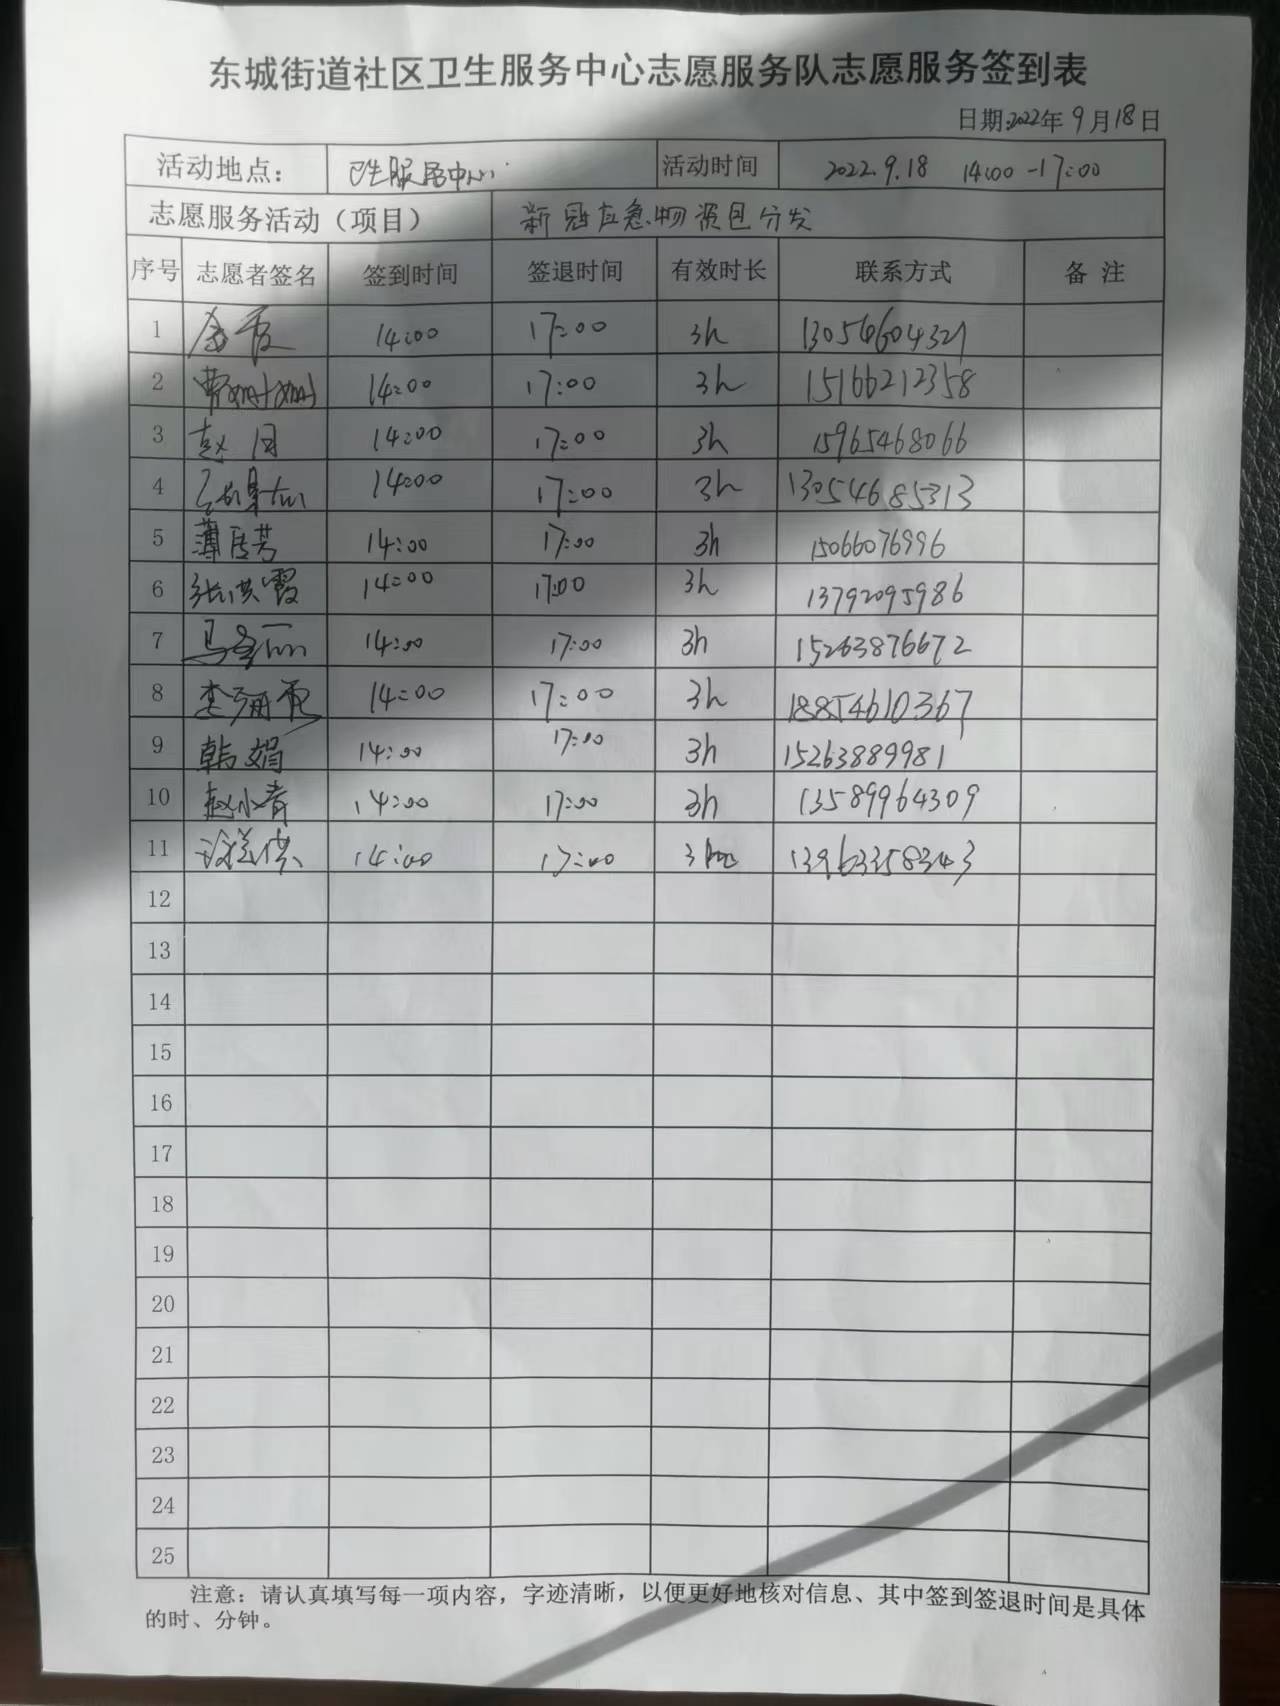 东城街道社区卫生服务中心志愿服务队志愿服务签到表
日期:2022年9月18日
活动地点： 卫生服务中心 活动时间 2022.9.18 14:00-17:00
志愿服务活动（项目） 新冠应急物资包分发
序号 志愿者签名 签到时间 签退时间 有效时长 联系方式 备 注
1 14:00 17:00 3h 13056604321
2 费姗姗 14:00 17:00 3h 15166212358
3 赵 14:00 17:00 3h 15965468066
4 14:00 17:00 3h 13054685313
5 薄 芳 14:00 17:00 3h 15066076996
6 张洪霞 14:00 17:00 3h 13792095986
7 马 丽 14:00 17:00 3h 15263876672
8 李 14:00 17:00 3h 18854610367
9 韩娟 14:00 17:00 3h 15263889981
10 赵小青 14:00 17:00 3h 13589964309
11 14:00 17:00 3 13963358343
12
13
14
15
16
17
18
19
20
21
22
23
24
25
注意：请认真填写每一项内容，字迹清晰，以便更好地核对信息、其中签到签退时间是具体
的时、分钟。